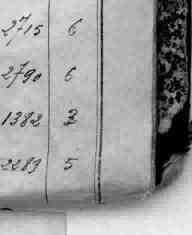 2715 6
2790 6
1382 3
2289 5